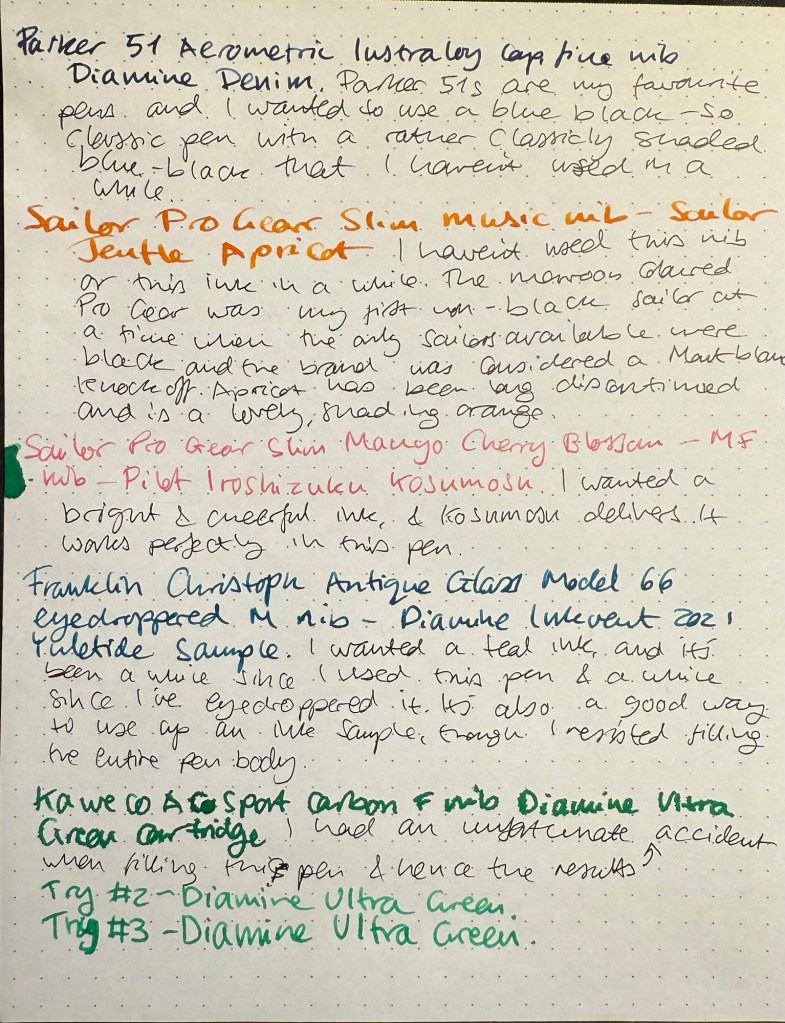 Parker 51 Aerometric lustraloy cap fine nib
Diamine Denim. Parker 51s are my favourite
pens and I wanted to use a blue black - so
classic pen with a rather classicly shaded
blue-black that I haven't used in a
while.
Sailor Pro Gear Slim music nib - Sailor
Jentle Apricot I haven't used this nib
or this ink in a while. The maroon coloured
Pro Gear was my first non-black sailor at
a time when the only sailors available were
black and the brand was considered a Montblanc
knockoff. Apricot has been long discontinued
and is a lovely, shading orange.
Sailor Pro Gear Slim Manyo Cherry Blossom - MF
nib - Pilot Iroshizuku Kosumosu. I wanted a
bright & cheerful ink, & Kosumosu delivers. It
works perfectly in this pen.
Franklin Christoph Antique Glass Model 66
eyedroppered M nib - Diamine Inkvent 2021
Yuletide Sample. I wanted a teal ink, and it's
been a while since I used this pen & a while
since I've eyedroppered it. It's also a good way
to use up an ink sample, though I resisted filling
the entire pen body.
Kaweco AC Sport Carbon F nib Diamine Ultra
Green cartridge I had an unfortunate accident
when filling this pen & hence the results
Try #2 - Diamine Ultra Green.
Try #3 - Diamine Ultra Green.